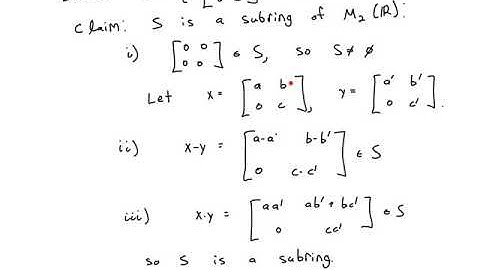 Claim: S is a subring of M₂(ℝ):
i) [0 0; 0 0] ∈ S, so S ≠ ∅
Let x = [a b; 0 c], y = [a' b'; 0 c'].
ii) x-y = [a-a' b-b'; 0 c-c'] ∈ S
iii) x·y = [aa' ab'+bc'; 0 cc'] ∈ S
so S is a subring.